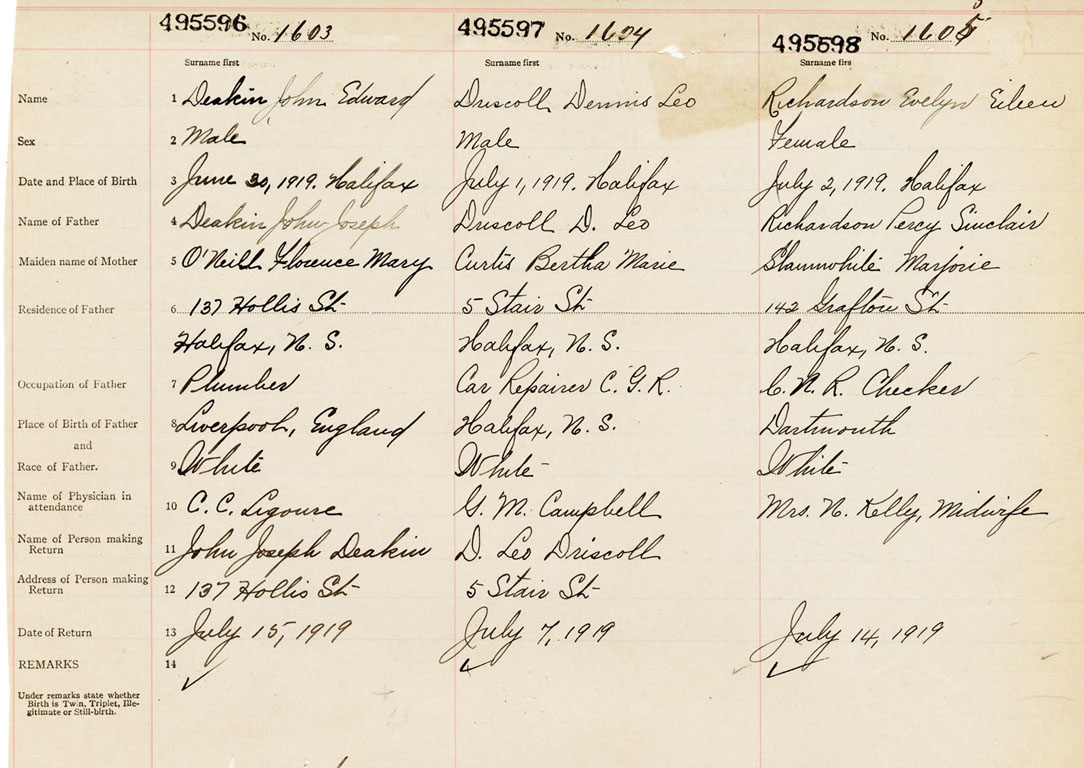 495596 No. 1603 495597 No. 1604 495598 No. 1605
Surname first Surname first Surname first
Name 1 Deakin John Edward Driscoll Dennis Leo Richardson Evelyn Eileen
Sex 2 Male Male Female
Date and Place of Birth 3 June 30, 1919. Halifax July 1, 1919. Halifax July 2, 1919. Halifax
Name of Father 4 Deakin John Joseph Driscoll D. Leo Richardson Percy Sinclair
Maiden name of Mother 5 O'Neill Florence Mary Curtis Bertha Marie Slaunwhite Marjorie
Residence of Father 6 137 Hollis St 5 Stair St 142 Grafton St
Halifax, N. S. Halifax, N. S. Halifax, N. S.
Occupation of Father 7 Plumber Car Repairer C. G. R. C. N. R. Checker
Place of Birth of Father 8 Liverpool, England Halifax, N. S. Dartmouth
and
Race of Father. 9 White White White
Name of Physician in
attendance 10 C. C. Ligoure G. M. Campbell Mrs. N. Kelly, Midwife
Name of Person making
Return 11 John Joseph Deakin D. Leo Driscoll
Address of Person making
Return 12 137 Hollis St 5 Stair St
Date of Return 13 July 15, 1919 July 7, 1919 July 14, 1919
REMARKS 14
Under remarks state whether
Birth is Twin, Triplet, Ille-
gitimate or Still-birth.